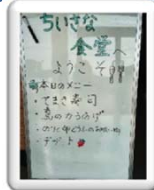 ちいさな
食堂へ
ようこそ
本日のメニー
・てまき寿司
・魚のからあげ
・
デザート